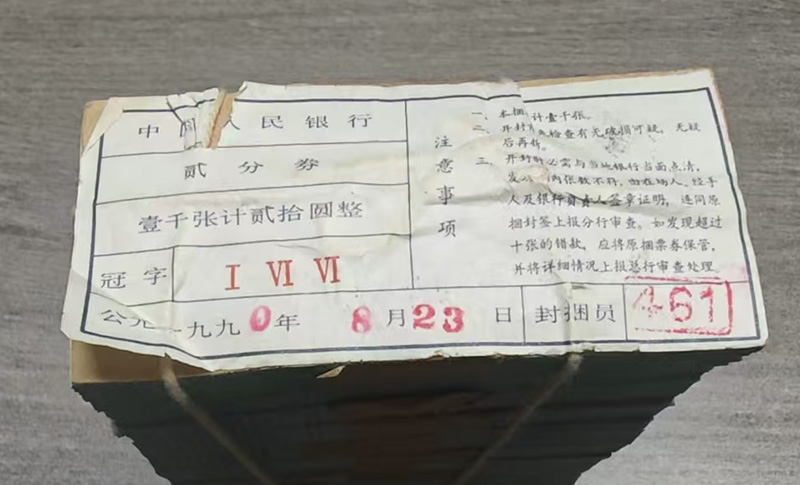 中 人民银行
贰分券
壹千张计贰拾圆整
冠字 I VI VI
公元一九九0年 8月23日 封捆员 461
注意事项
一、本捆 计壹千张。
二、开封 检查有无破损可疑，无疑
后再拆。
三、开封时必需与当地银行当面点清，
发 张数不符，由在场人、经手
人及银行负责人签章证明，连同原
捆封签上报分行审查。如发现超过
十张的错款，应将原捆票券保管，
并将详细情况上报总行审查处理。